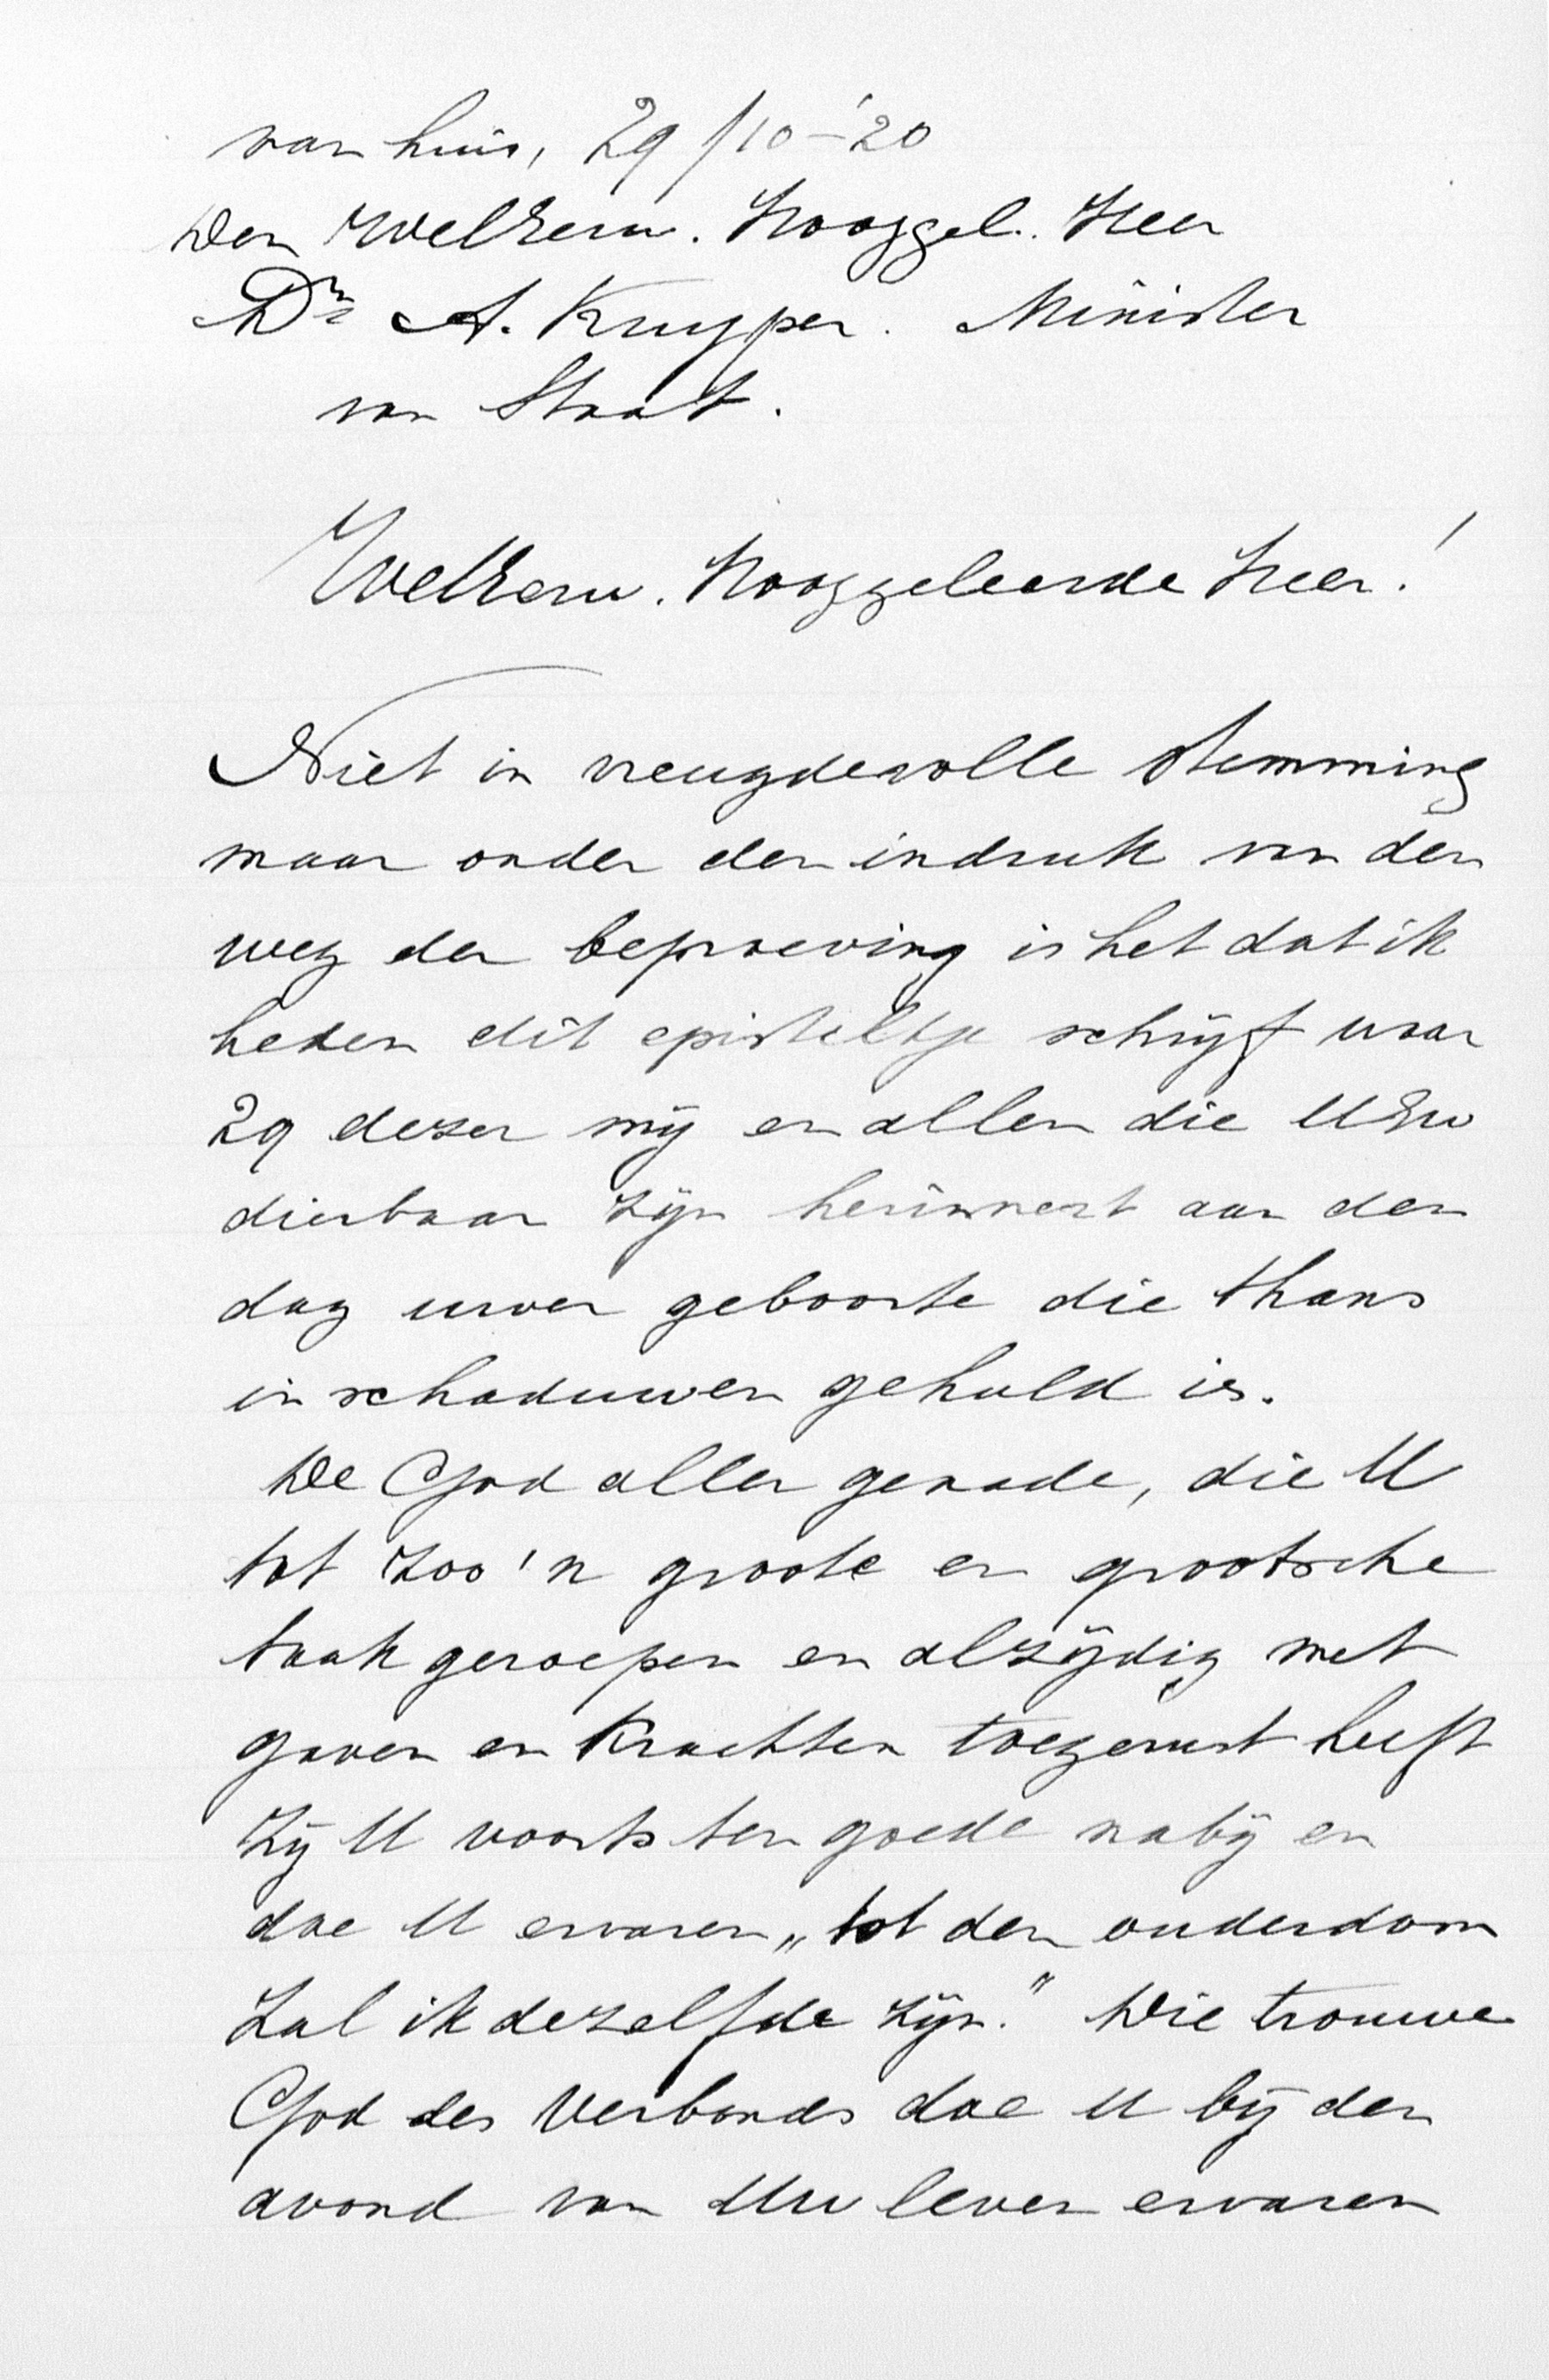 van huis, 29/10-'20
Den WelEerw. Hooggel. Heer
Dr A. Kuyper. Minister
van Staat.
WelEerw. Hooggeleerde Heer!
Niet in vreugdevolle stemming
maar onder den indruk van den
weg der beproeving is het dat ik
heden dit episteltje schrijf waar
29 dezer mij en allen die UEw
dierbaar zijn herinnert aan den
dag uwer geboorte die thans
in schaduwen gehuld is.
De God aller genade, die U
tot zoo'n groote en grootsche
taak geroepen en alzijdig met
gaven en krachten toegerust heeft
zij U voorts ten goede nabij en
doe U ervaren „tot den ouderdom
zal ik dezelfde zijn." Die trouwe
God des Verbonds doe U bij den
avond van Uw leven ervaren